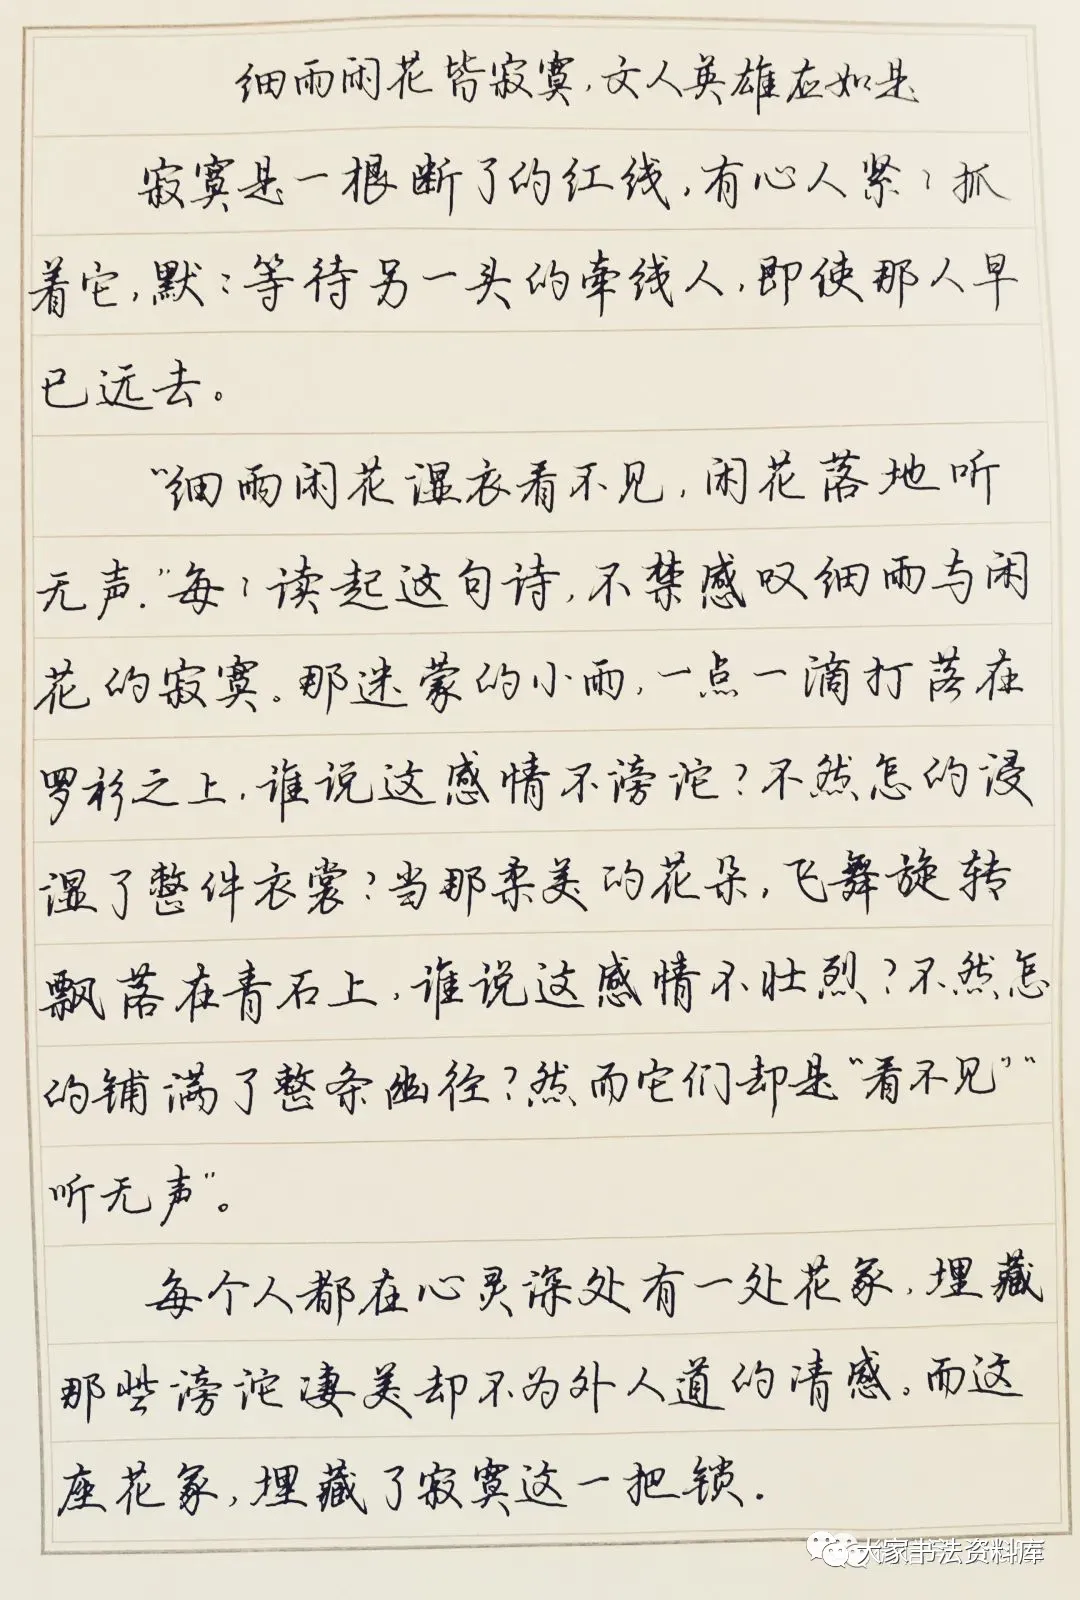 细雨闲花皆寂寞,文人英雄应如是
寂寞是一根断了的红线,有心人紧々抓
着它,默々等待另一头的牵线人,即使那人早
已远去。
“细雨闲花湿衣看不见,闲花落地听
无声.”每々读起这句诗,不禁感叹细雨与闲
花的寂寞。那迷蒙的小雨,一点一滴打落在
罗衫之上,谁说这感情不滂沱?不然怎的浸
湿了整件衣裳?当那柔美的花朵,飞舞旋转
飘落在青石上,谁说这感情不壮烈?不然怎
的铺满了整条幽径?然而它们却是“看不见”“
听无声”。
每个人都在心灵深处有一处花冢,埋藏
那些滂沱凄美却不为外人道的情感。而这
座花冢,埋藏了寂寞这一把锁.
大家书法资料库